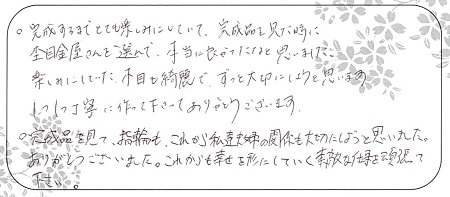 ○完成するまでとても楽しみにしていて、完成品を見た時に
杢目金屋さんを選んで、本当に良かったなと思いました。
楽しみにしていた木目も綺麗で、ずっと大切にしようと思います
1つ1つ丁寧に作って下さってありがとうございます。
○完成品を見て、指輪も、これから私達夫婦の関係も大切にしようと思いました。
ありがとうございました。これからも幸せを形にしていく素敵な仕事を頑張って
下さい。